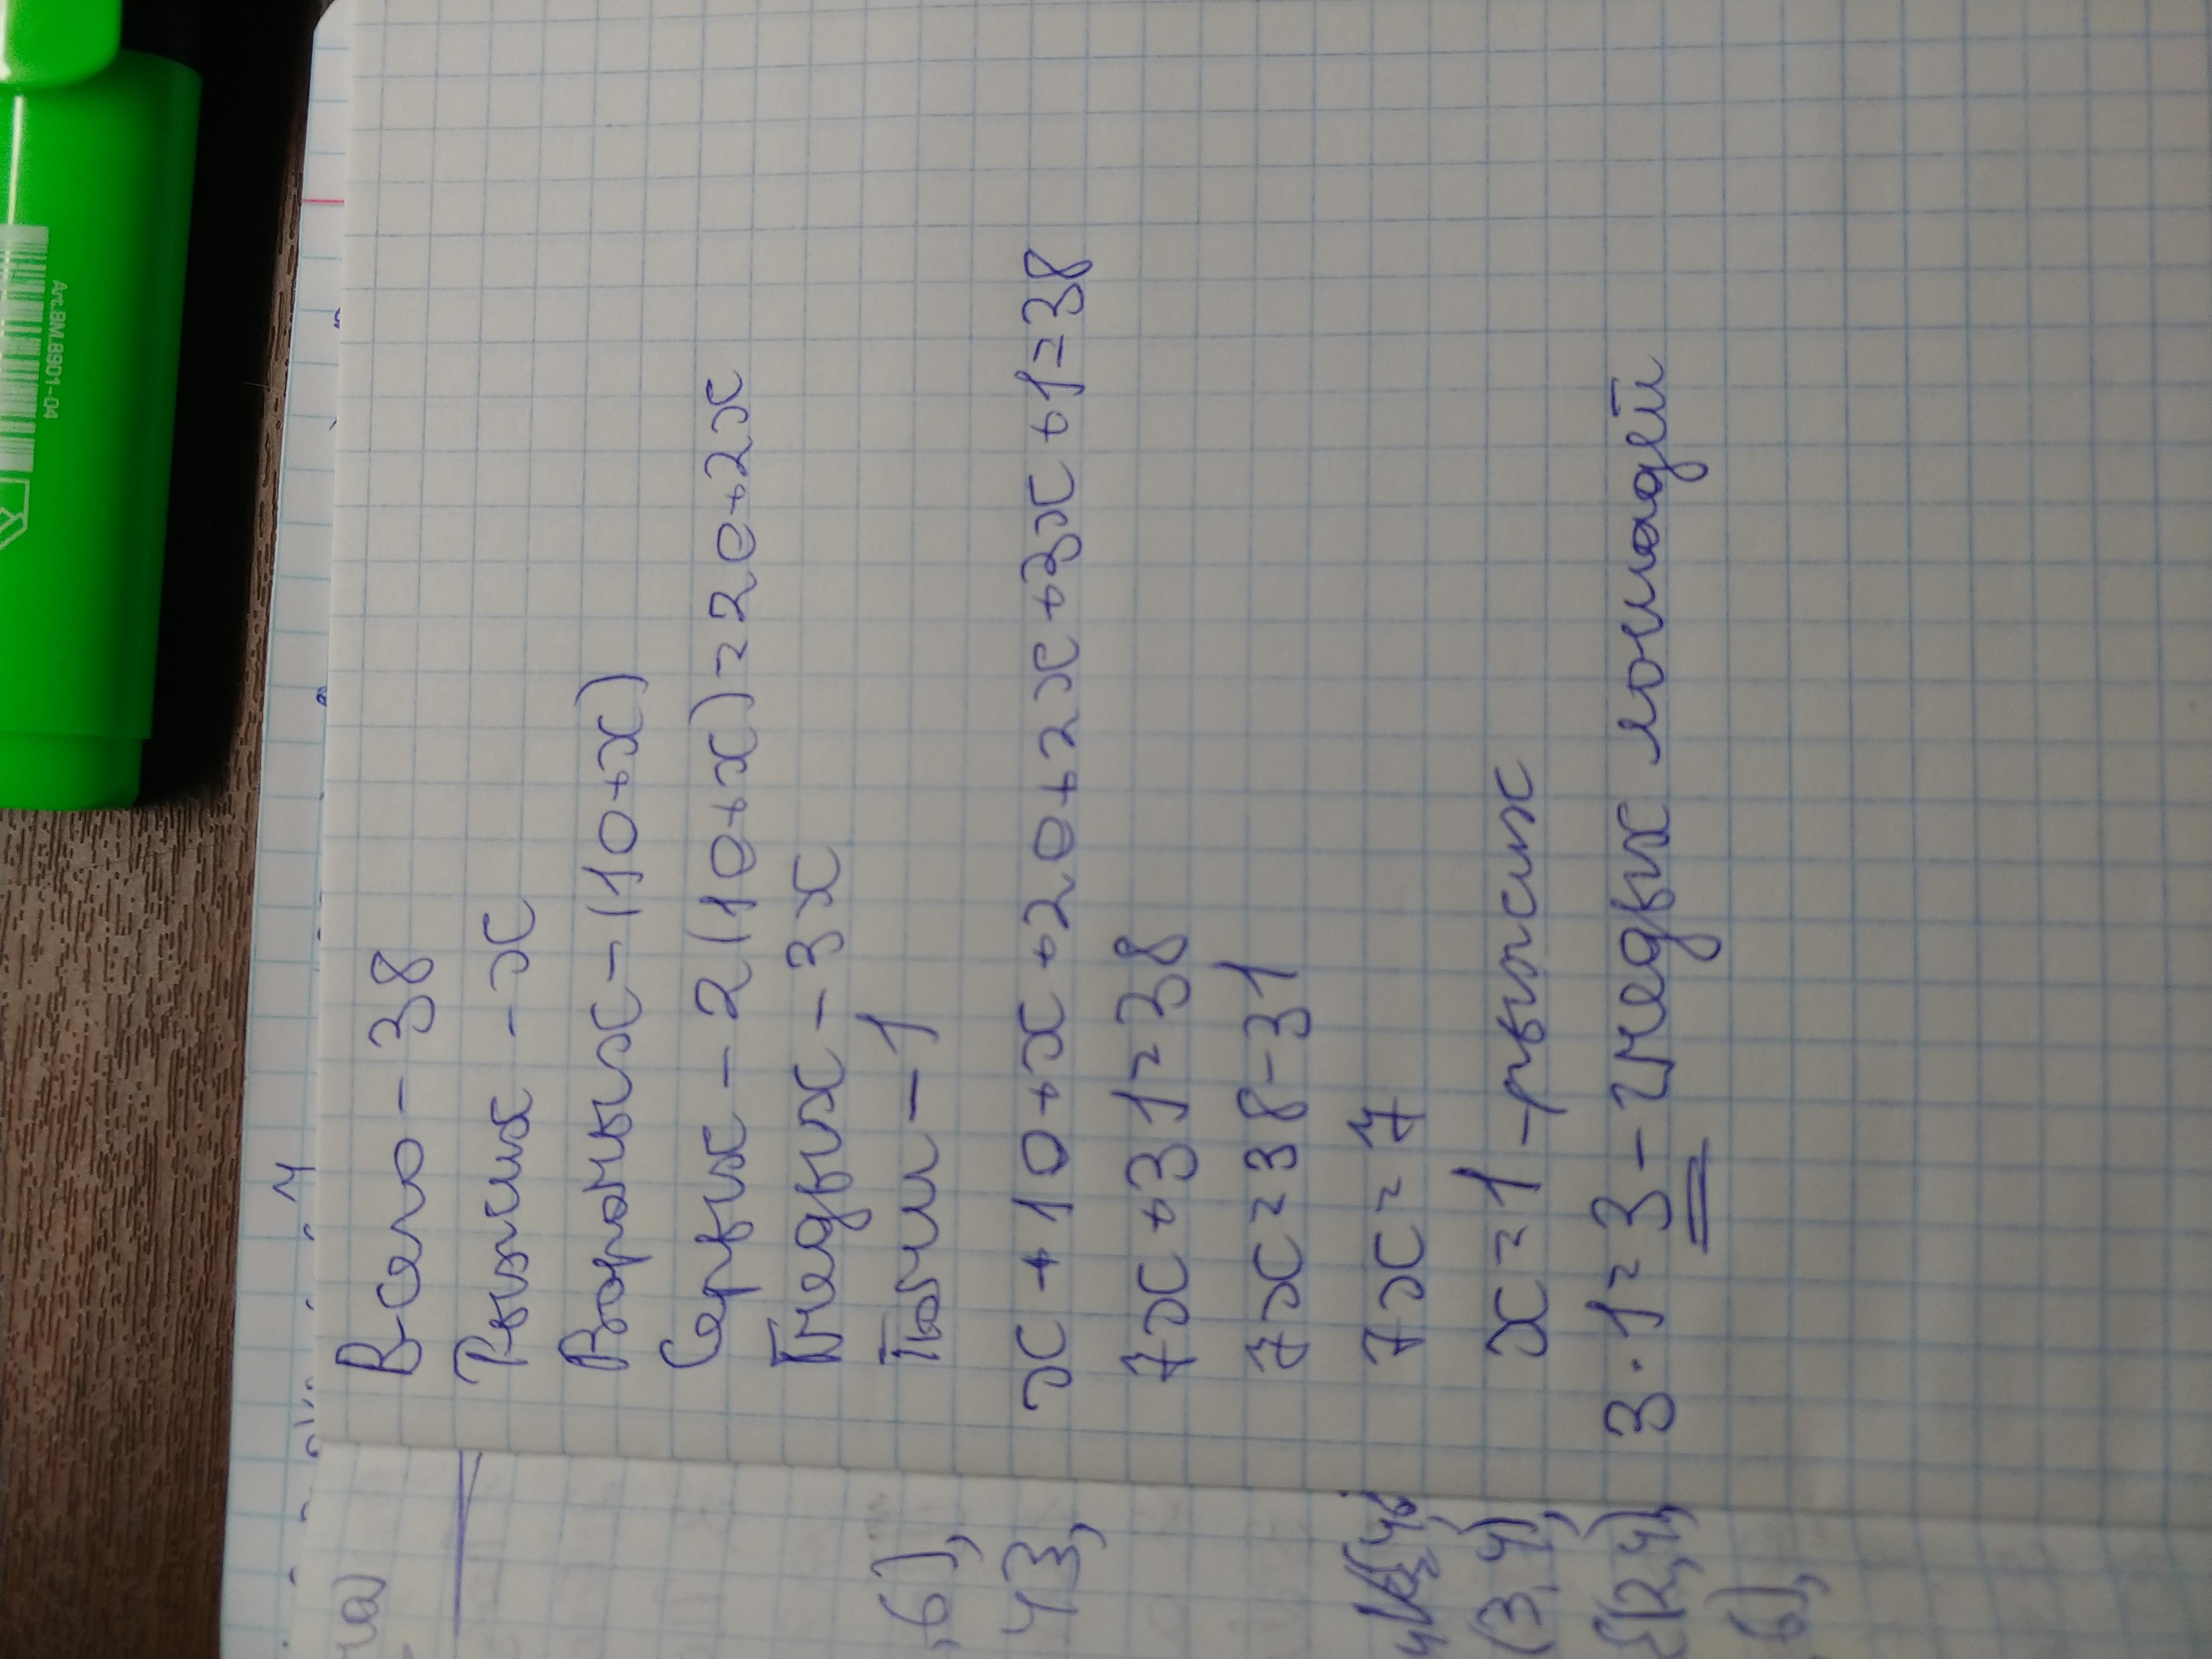 Всего - 38
Рыжих - x
Вороных - (10+x)
Серых - 2(10+x)=20+2x
Гнедых - 3x
Пони - 1
x+10+x+20+2x+3x+1=38
7x+31=38
7x=38-31
7x=7
x=1 - рыжих
3·1=3 - гнедых лошадей
,6),
43,
(3,4),
{(2,4),
6),
Art.BM.8901-04